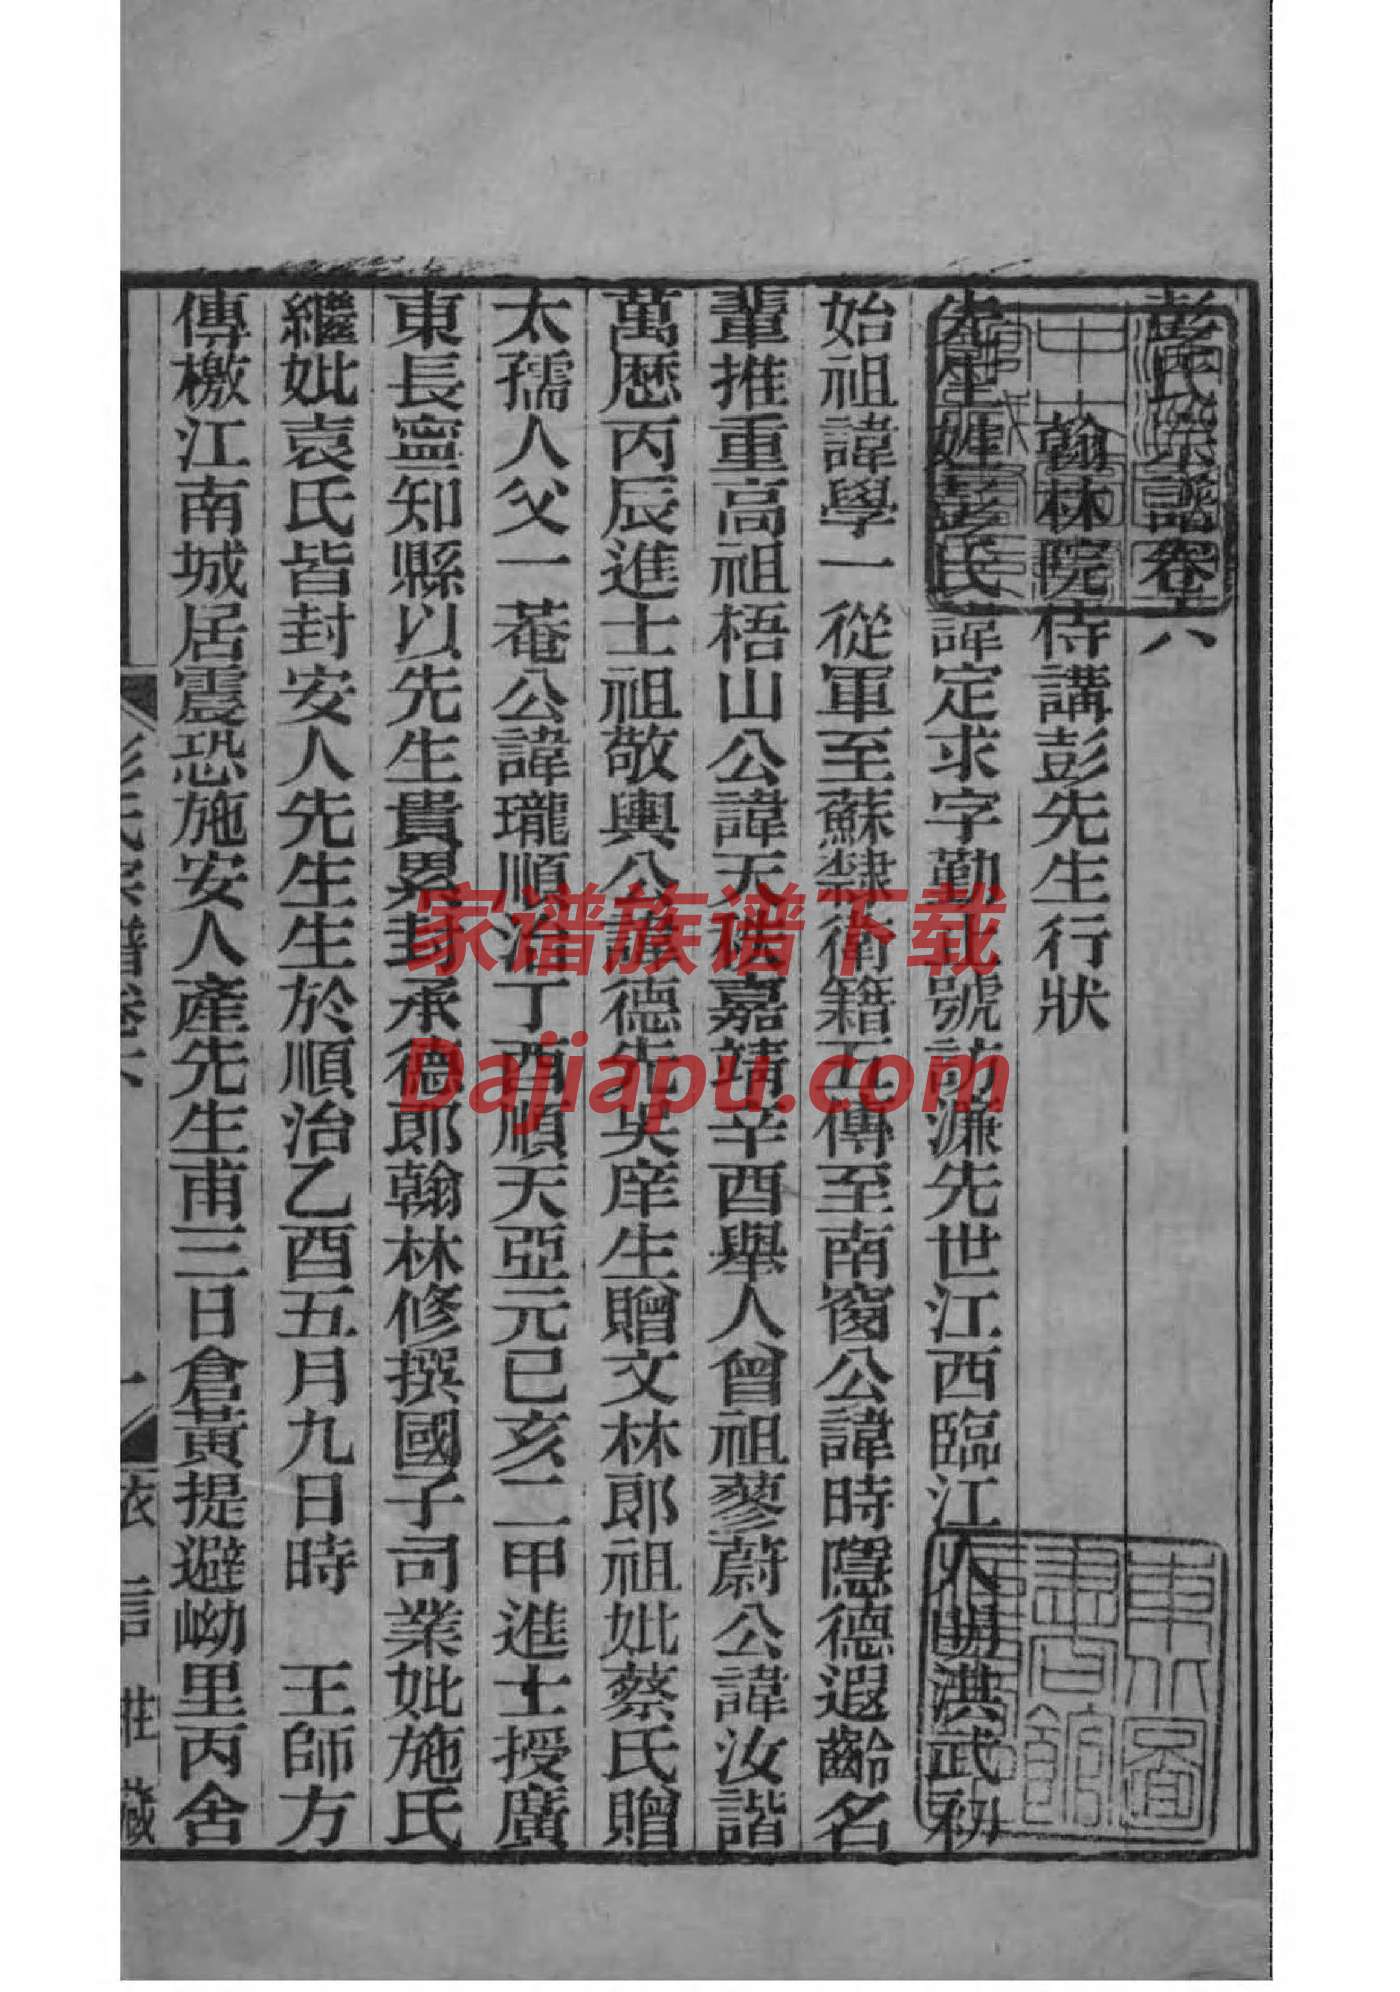 彭氏宗譜卷六
翰林院侍講彭先生行狀
先生姓彭氏諱定求字勤止號訪濂先世江西臨江人明洪武初
始祖諱學一從軍至蘇隸衛籍五傳至南窗公諱時隱德遐齡名
輩推重高祖梧山公諱天秩嘉靖辛酉舉人曾祖蓼蔚公諱汝諧
萬歷丙辰進士祖敬輿公諱德先吳庠生贈文林郎祖妣蔡氏贈
太孺人父一菴公諱瓏順治丁酉順天亞元已亥二甲進士授廣
東長寧知縣以先生貴累封承德郎翰林修撰國子司業妣施氏
繼妣袁氏皆封安人先生生於順治乙酉五月九日時 王師方
傳檄江南城居震恐施安人產先生甫三日倉黃提避岰里丙舍
彭氏宗譜卷六 一 衣言莊藏
家谱族谱下载
Dajiapu.com
東方圖書館